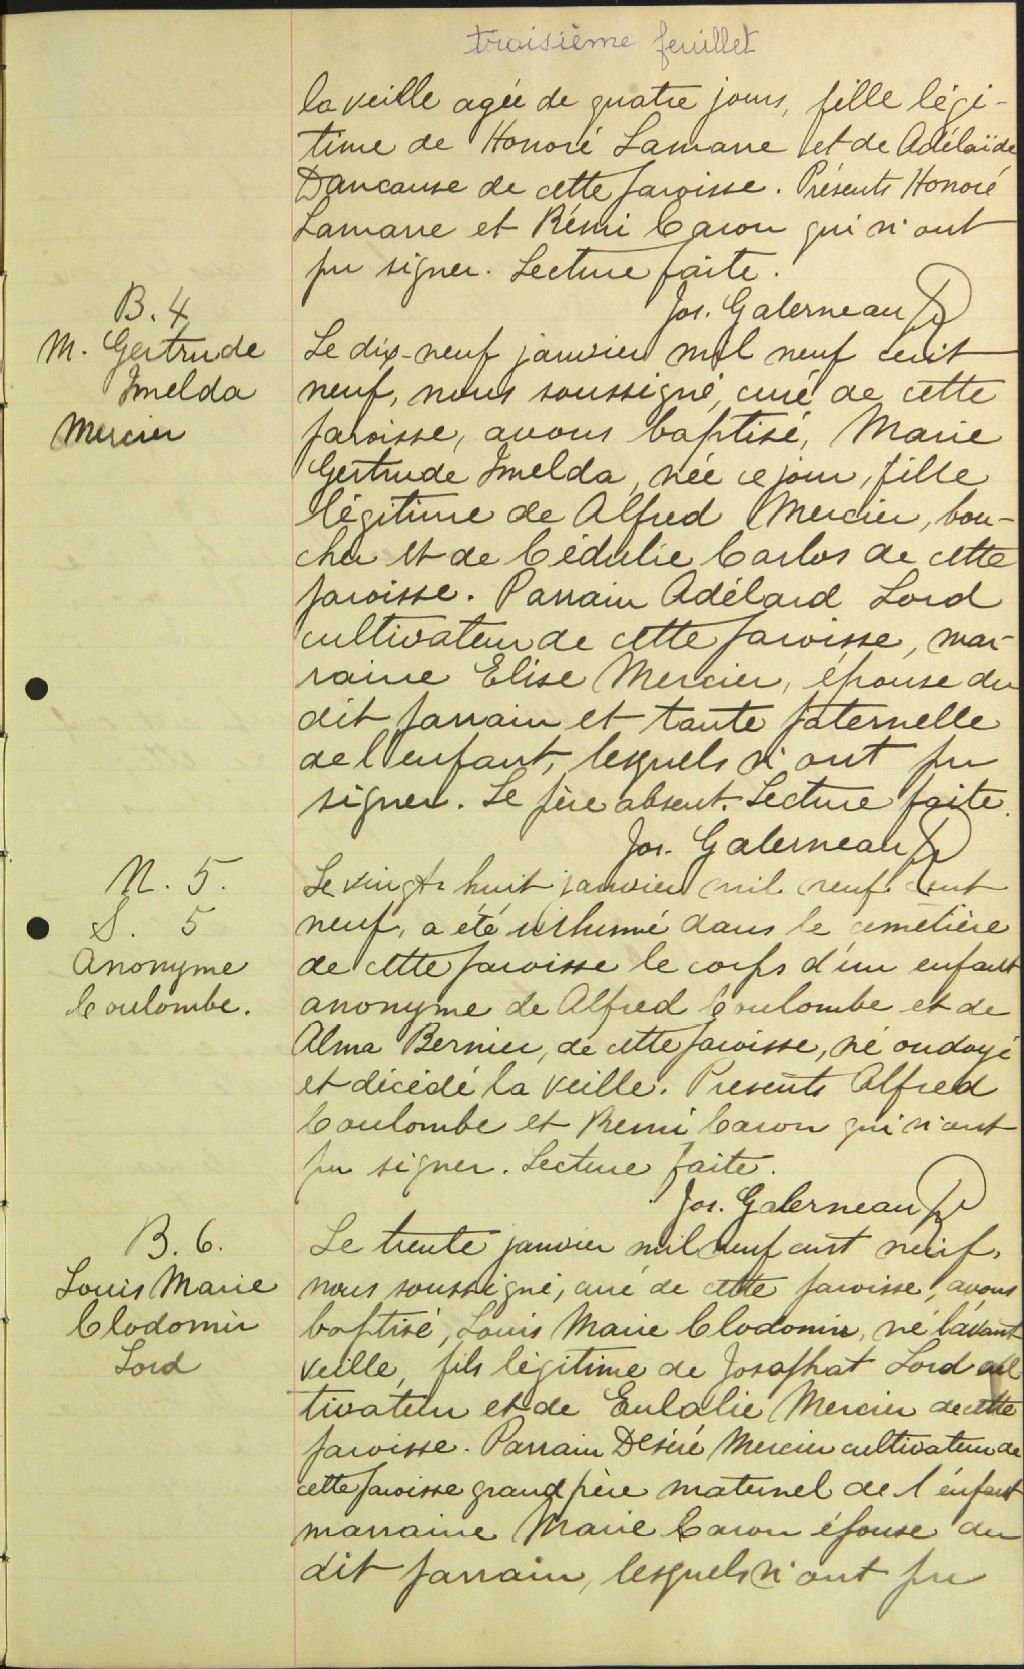 troisième feuillet
la veille agée de quatre jours, fille légi-
time de Honoré Lamarre et de Adélaïde
Dancause de cette paroisse. Présents Honoré
Lamarre et Rémi Caron qui n'ont
pu signer. Lecture faite.
Jos. Galerneau Ptr
B. 4
M. Gertrude
Imelda
Mercier
Le dix-neuf janvier mil neuf cent
neuf, nous soussigné, curé de cette
paroisse, avons baptisé, Marie
Gertrude Imelda, née ce jour, fille
légitime de Alfred Mercier, bou-
cher et de Cédulie Carlos de cette
paroisse. Parrain Adélard Lord
cultivateur de cette paroisse, mar-
raine Elise Mercier, épouse du
dit parrain et tante paternelle
de l'enfant, lesquels n'ont pu
signer. Le père absent. Lecture faite.
Jos. Galerneau Ptr
N. 5.
S. 5
Anonyme
Coulombe.
Le vingt huit janvier mil neuf cent
neuf, a été inhumé dans le cimetière
de cette paroisse le corps d'un enfant
anonyme de Alfred Coulombe et de
Alma Bernier, de cette paroisse, né ondoyé
et décédé la veille. Presents Alfred
Coulombe et Remi Caron qui n'ont
pu signer. Lecture faite.
Jos. Galerneau Ptr
B. 6.
Louis Marie
Clodomir
Lord
Le trente janvier mil neuf cent neuf,
nous soussigné, curé de cette paroisse, avons
baptisé, Louis Marie Clodomir, né l'avant
veille, fils légitime de Josaphat Lord cul
tivateur et de Eulalie Mercier de cette
paroisse. Parrain Désiré Mercier cultivateur de
cette paroisse grand père maternel de l'enfant
marraine Marie Caron épouse du
dit parrain, lesquels n'ont pu